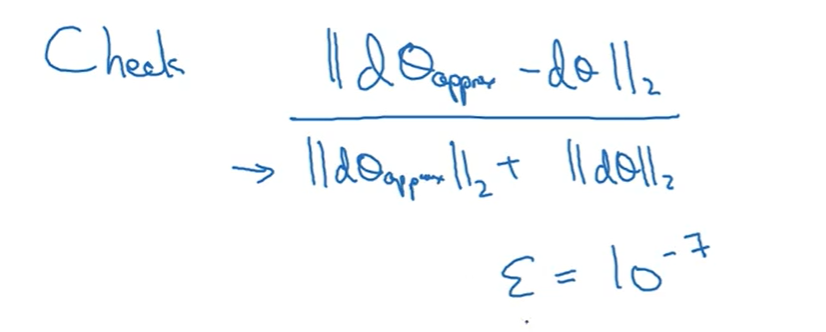 Check ||dθapprox - dθ||₂
→ ||dθapprox||₂ + ||dθ||₂
ε = 10⁻⁷